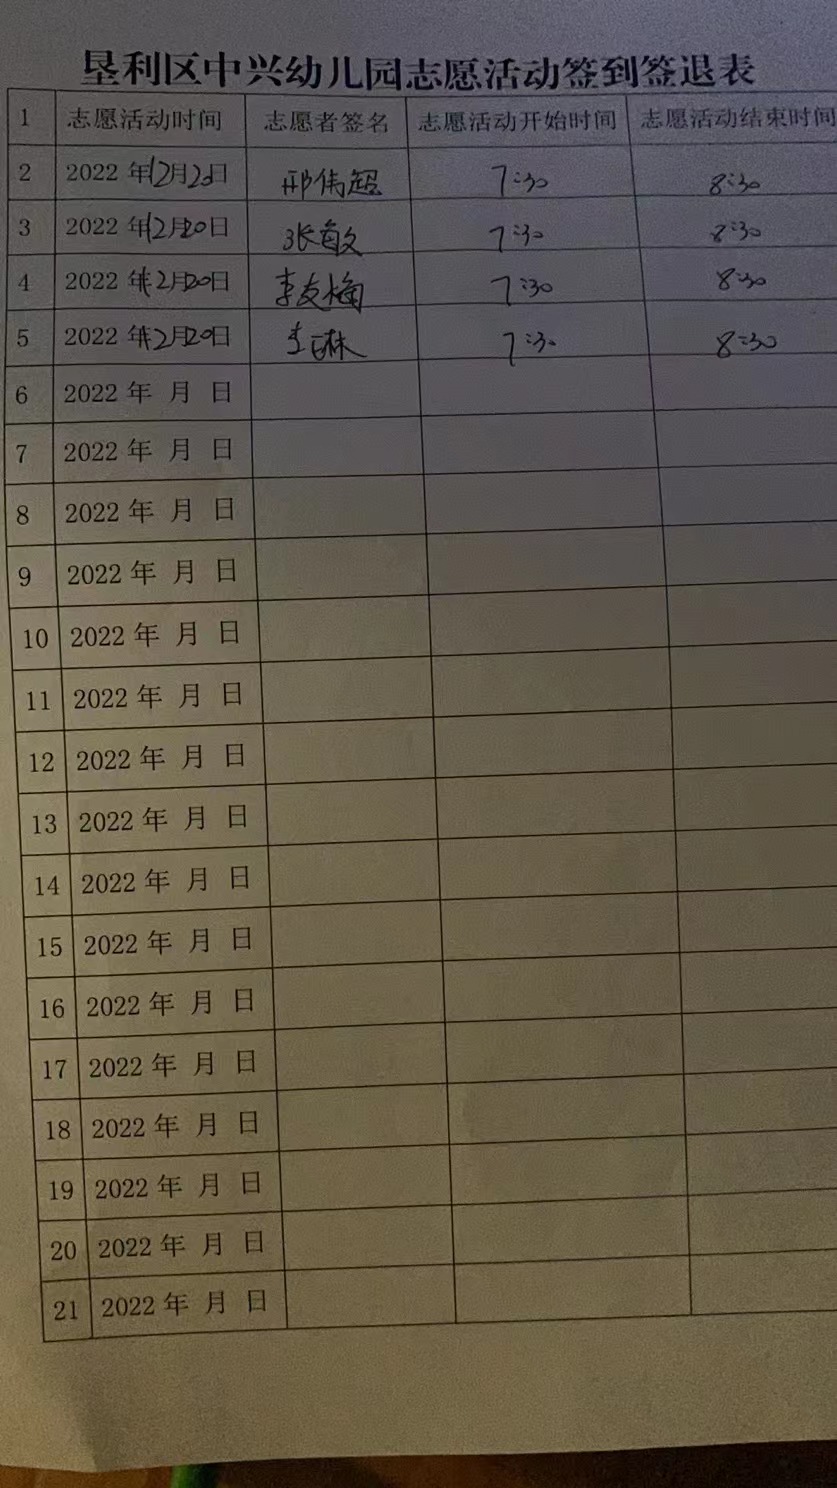 垦利区中兴幼儿园志愿活动签到签退表
1 志愿活动时间 志愿者签名 志愿活动开始时间 志愿活动结束时间
2 2022 年12月20日 邢伟超 7:30 8:30
3 2022 年12月20日 张敏 7:30 8:30
4 2022 年12月20日 李友梅 7:30 8:30
5 2022 年12月20日 李琳 7:30 8:30
6 2022 年 月 日
7 2022 年 月 日
8 2022 年 月 日
9 2022 年 月 日
10 2022 年 月 日
11 2022 年 月 日
12 2022 年 月 日
13 2022 年 月 日
14 2022 年 月 日
15 2022 年 月 日
16 2022 年 月 日
17 2022 年 月 日
18 2022 年 月 日
19 2022 年 月 日
20 2022 年 月 日
21 2022 年 月 日